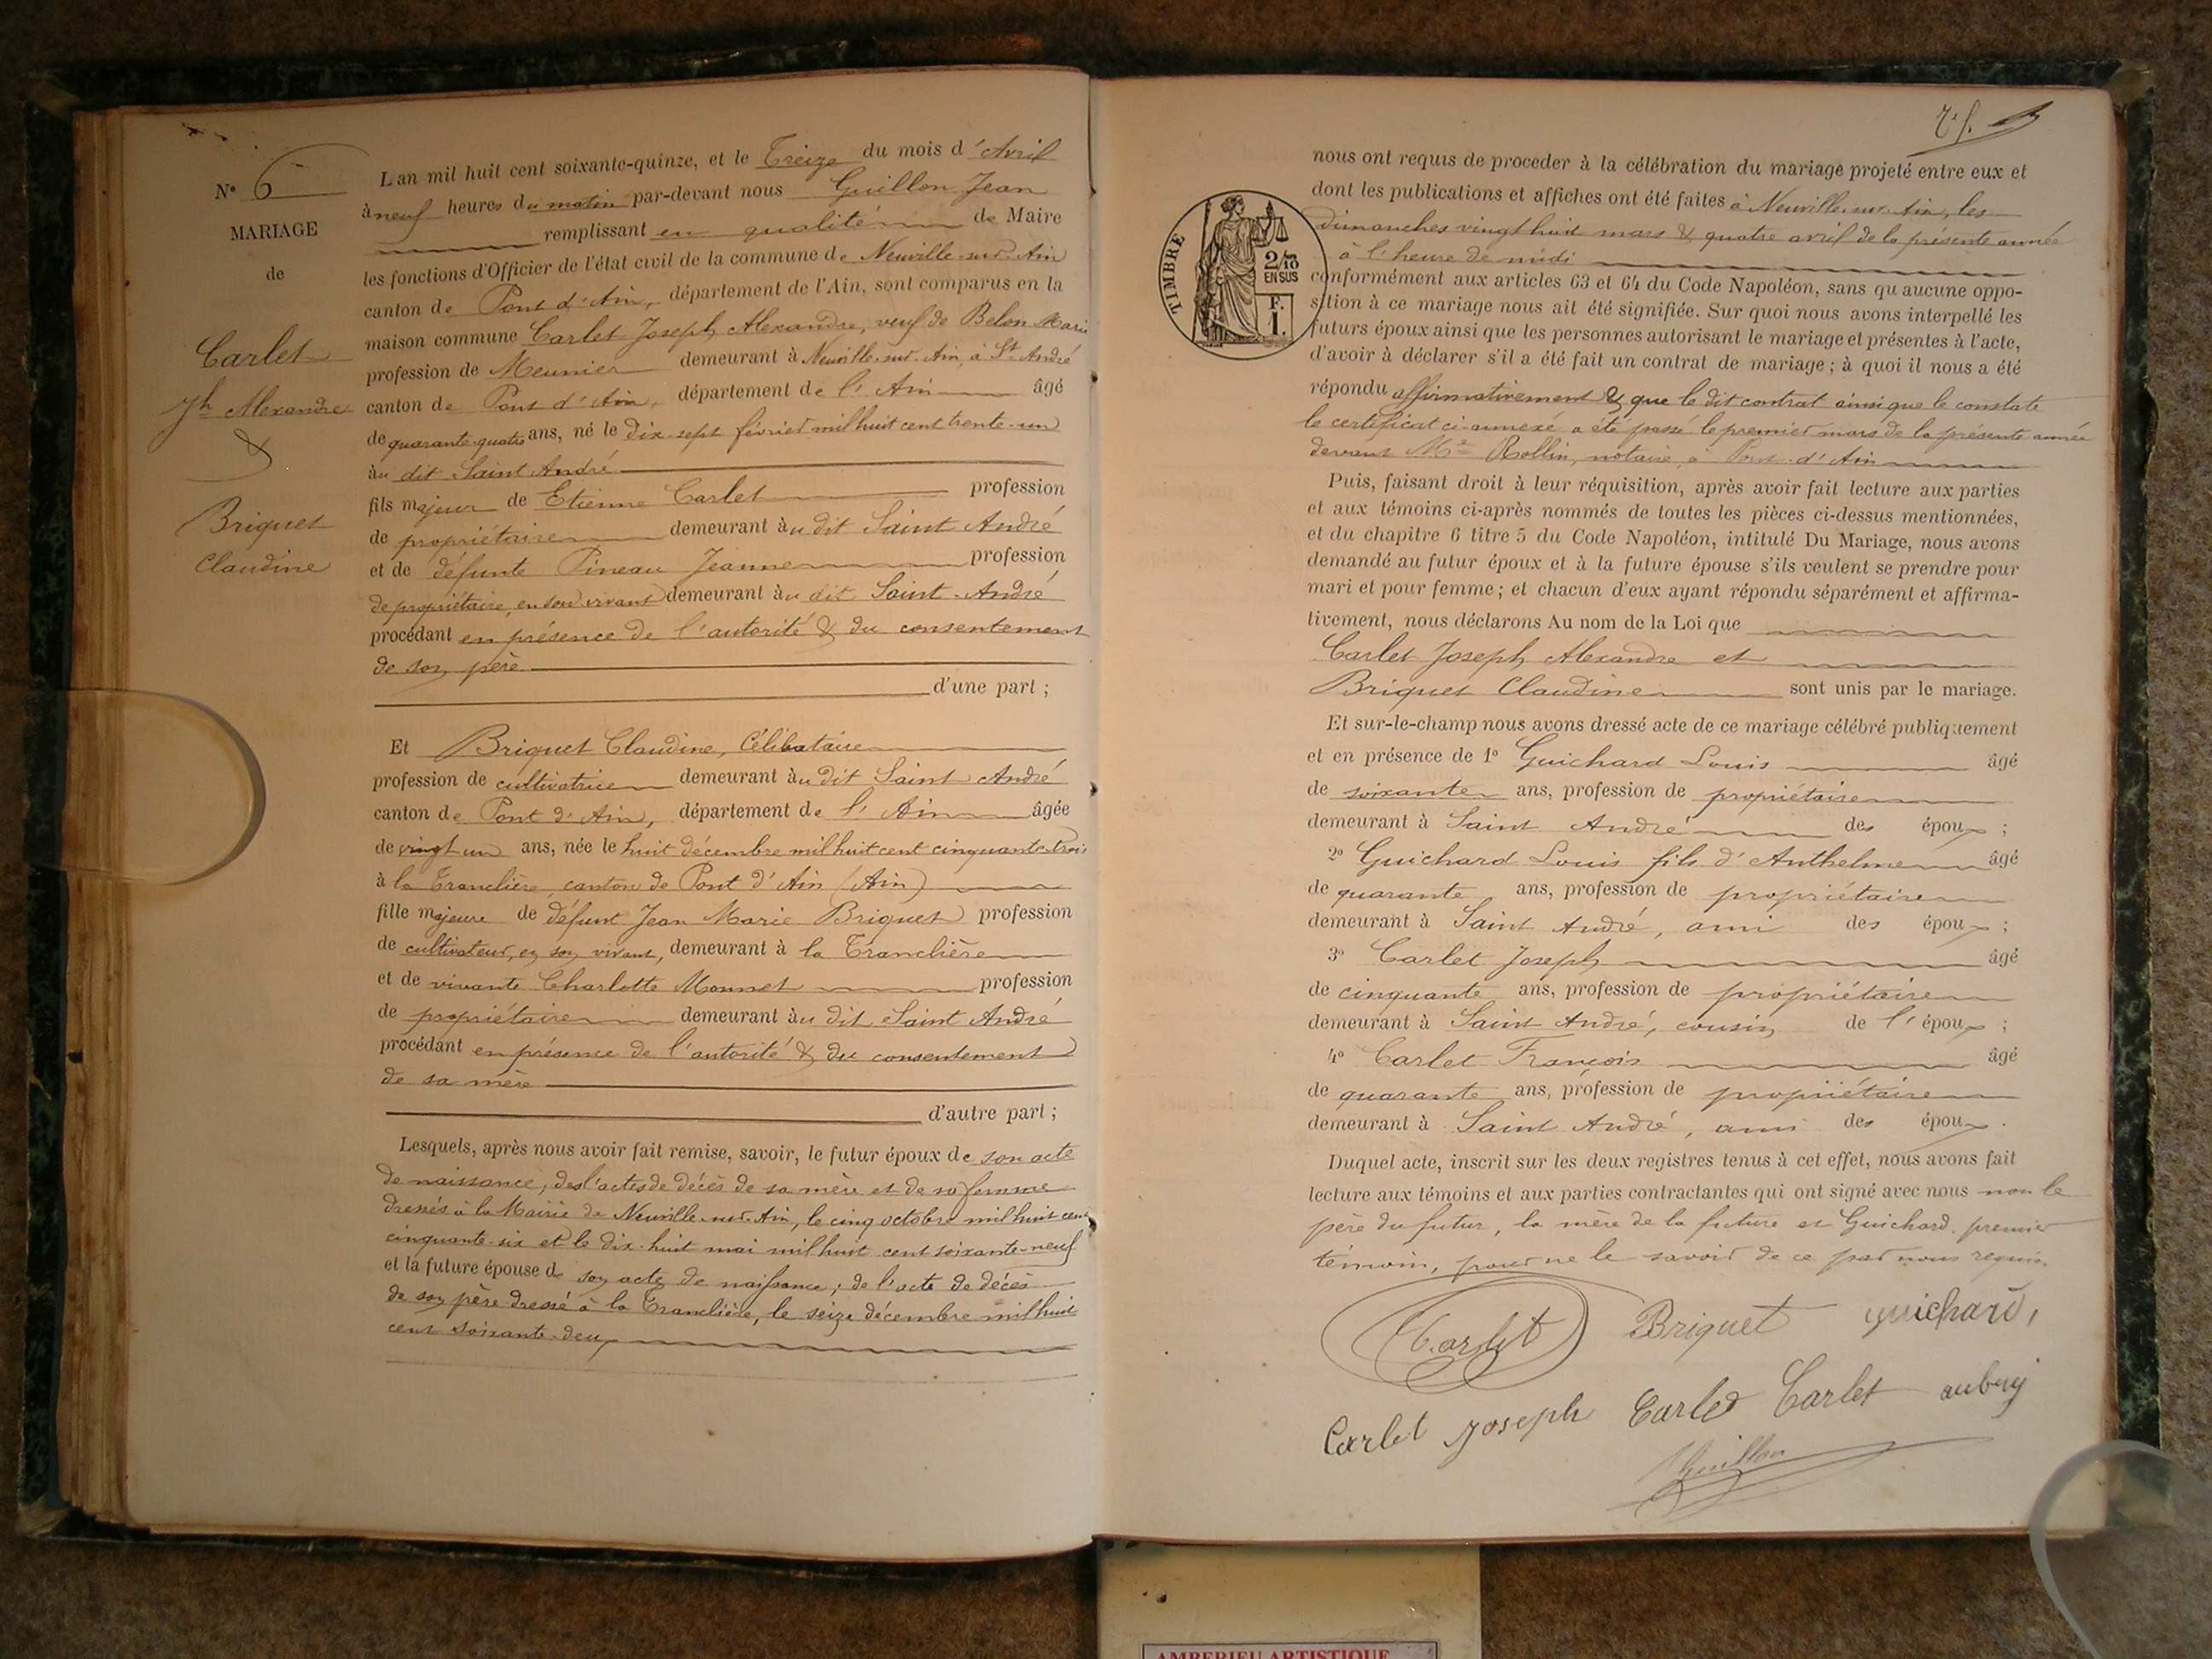 N° 6
MARIAGE
de
Carlet
Jh Alexandre
&
Briquet
Claudine
L'an mil huit cent soixante-quinze, et le Treize du mois d'Avril
à neuf heures du matin par-devant nous Guillon Jean
remplissant en qualité de Maire
les fonctions d'Officier de l'état civil de la commune de Neuville-sur-Ain
canton de Pont d'Ain, département de l'Ain, sont comparus en la
maison commune Carlet Joseph Alexandre, veuf de Belon Marie
profession de Meunier demeurant à Neuville-sur-Ain, à St André
canton de Pont d'Ain, département de l'Ain âgé
de quarante-quatre ans, né le dix-sept février mil huit cent trente-un
au dit Saint André
fils majeur de Etienne Carlet profession
de propriétaire demeurant au dit Saint André
et de défunte Pineau Jeanne profession
de propriétaire, en son vivant demeurant au dit Saint-André
procédant en présence de l'autorité & du consentement
de son père
d'une part ;
Et Briquet Claudine, Célibataire
profession de cultivatrice demeurant au dit Saint André
canton de Pont d'Ain, département de l'Ain âgée
de vingt un ans, née le huit décembre mil huit cent cinquante-trois
à la Tranclière canton de Pont d'Ain (Ain)
fille majeure de défunt Jean Marie Briquet profession
de cultivateur, en son vivant, demeurant à la Tranclière
et de vivante Charlotte Monnet profession
de propriétaire demeurant au dit Saint André
procédant en présence de l'autorité & du consentement
de sa mère
d'autre part ;
Lesquels, après nous avoir fait remise, savoir, le futur époux de son acte
de naissance, des l'actes de décès de sa mère et de sa femme
dressés à la Mairie de Neuville-sur-Ain, le cinq octobre mil huit cent
cinquante-six et le dix-huit mai mil huit cent soixante-neuf
et la future épouse de son acte de naissance ; de l'acte de décès
de son père dressé à la Tranclière, le seize décembre mil huit
cent soixante-deux
TIMBRE
2/10
EN SUS
F.
1.
nous ont requis de proceder à la célébration du mariage projeté entre eux et
dont les publications et affiches ont été faites à Neuville-sur-Ain, les
dimanches vingt huit mars & quatre avril de la présente année
à l'heure de midi
conformément aux articles 63 et 64 du Code Napoléon, sans qu'aucune oppo-
sition à ce mariage nous ait été signifiée. Sur quoi nous avons interpellé les
futurs époux ainsi que les personnes autorisant le mariage et présentes à l'acte,
d'avoir à déclarer s'il a été fait un contrat de mariage ; à quoi il nous a été
répondu affirmativement & que le dit contrat ainsi que le constate
le certificat ci-annexé a été passé le premier mars de la présente année
devant Me Rollin, notaire, à Pont-d'Ain
Puis, faisant droit à leur réquisition, après avoir fait lecture aux parties
et aux témoins ci-après nommés de toutes les pièces ci-dessus mentionnées,
et du chapitre 6 titre 5 du Code Napoléon, intitulé Du Mariage, nous avons
demandé au futur époux et à la future épouse s'ils veulent se prendre pour
mari et pour femme ; et chacun d'eux ayant répondu séparément et affirma-
tivement, nous déclarons Au nom de la Loi que
Carlet Joseph Alexandre et
Briquet Claudine sont unis par le mariage.
Et sur-le-champ nous avons dressé acte de ce mariage célébré publiquement
et en présence de 1° Guichard Louis âgé
de soixante ans, profession de propriétaire
demeurant à Saint André des époux ;
2° Guichard Louis fils d'Anthelme âgé
de quarante ans, profession de propriétaire
demeurant à Saint André, ami des époux ;
3° Carlet Joseph âgé
de cinquante ans, profession de propriétaire
demeurant à Saint André, cousin de l'époux ;
4° Carlet François âgé
de quarante ans, profession de propriétaire
demeurant à Saint André, ami des époux.
Duquel acte, inscrit sur les deux registres tenus à cet effet, nous avons fait
lecture aux témoins et aux parties contractantes qui ont signé avec nous non le
père du futur, la mère de la future et Guichard premier
témoin, pour ne le savoir de ce par nous requis.
Carlet Briquet guichard,
Carlet Joseph Carlet Carlet aubry
Guillon
AMBERIEU ARTISTIQUE